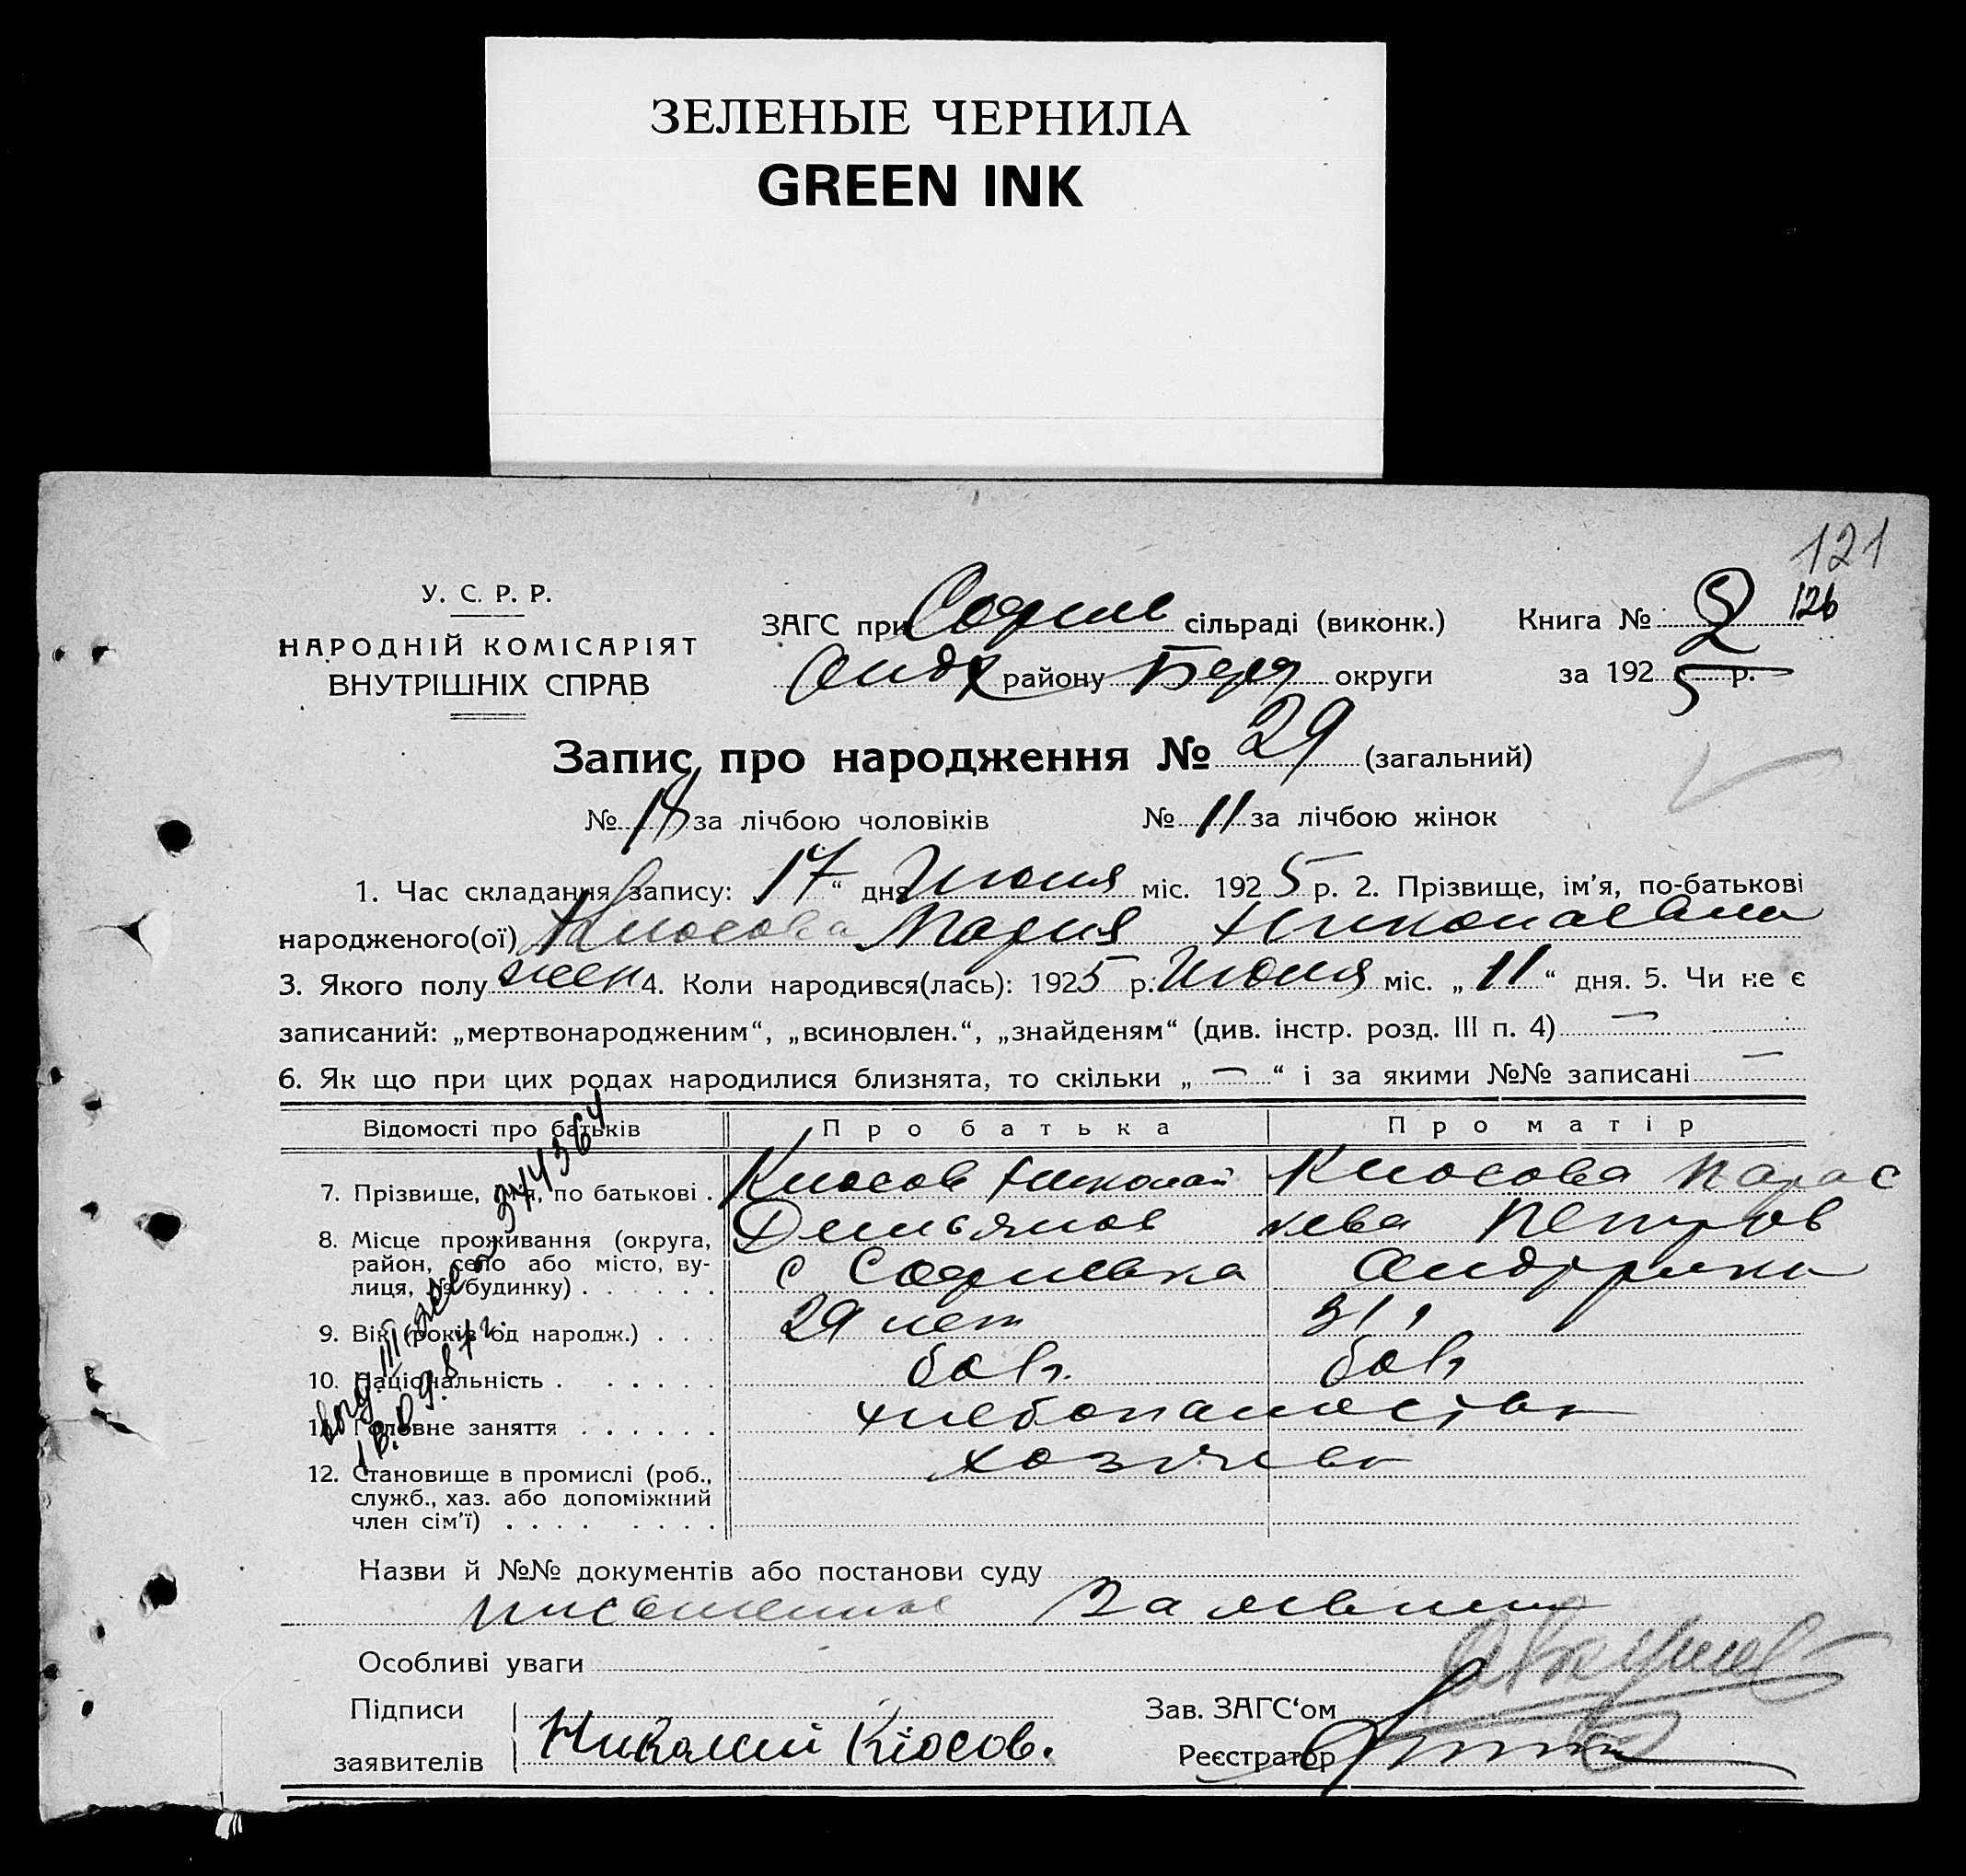 ЗЕЛЕНЫЕ ЧЕРНИЛА
GREEN INK
121
У. С. Р. Р.
НАРОДНІЙ КОМІСАРІЯТ
ВНУТРІШНІХ СПРАВ
ЗАГС при Софиев сільраді (виконк.) Книга № 2 126
Андр району Берд округи за 1925 р.
Запис про народження № 29 (загальний)
№ 18 за лічбою чоловіків № 11 за лічбою жінок
1. Час складання запису: 17 “ дня Июня міс. 1925 р. 2. Прізвище, ім’я, по-батькові
народженого(ої) Киосова Мария Николаевна
3. Якого полу жен 4. Коли народився(лась): 1925 р. Июня міс. „ 11 “ дня. 5. Чи не є
записаний: „мертвонародженим“, „всиновлен.“, „знайденям“ (див. інстр. розд. III п. 4) —
6. Як що при цих родах народилися близнята, то скільки „ — “ і за якими №№ записані —
Відомості про батьків Про батька Про матір
7. Прізвище, ім’я, по батькові . Киосов Николай Киосова Парас
Демьянов кева Петров
8. Місце проживання (округа,
район, село або місто, ву-
лиця, № будинку) . . . . . . с Софиевка Андр
9. Вік (років од народж.) . . . 29 лет 31 "
10. Національність . . . . . . болг. болг
11. Головне заняття . . . . . . хлебопашество
12. Становище в промислі (роб.,
служб., хаз. або допоміжний
член сім’ї) . . . . . . . . хозяева
выд. III жс 744364
18.09.87 г.
Назви й №№ документів або постанови суду
письменное заявление
Особливі уваги
Підписи
заявителів Николай Кіосов.
Зав. ЗАГС‘ом
Реєстратор